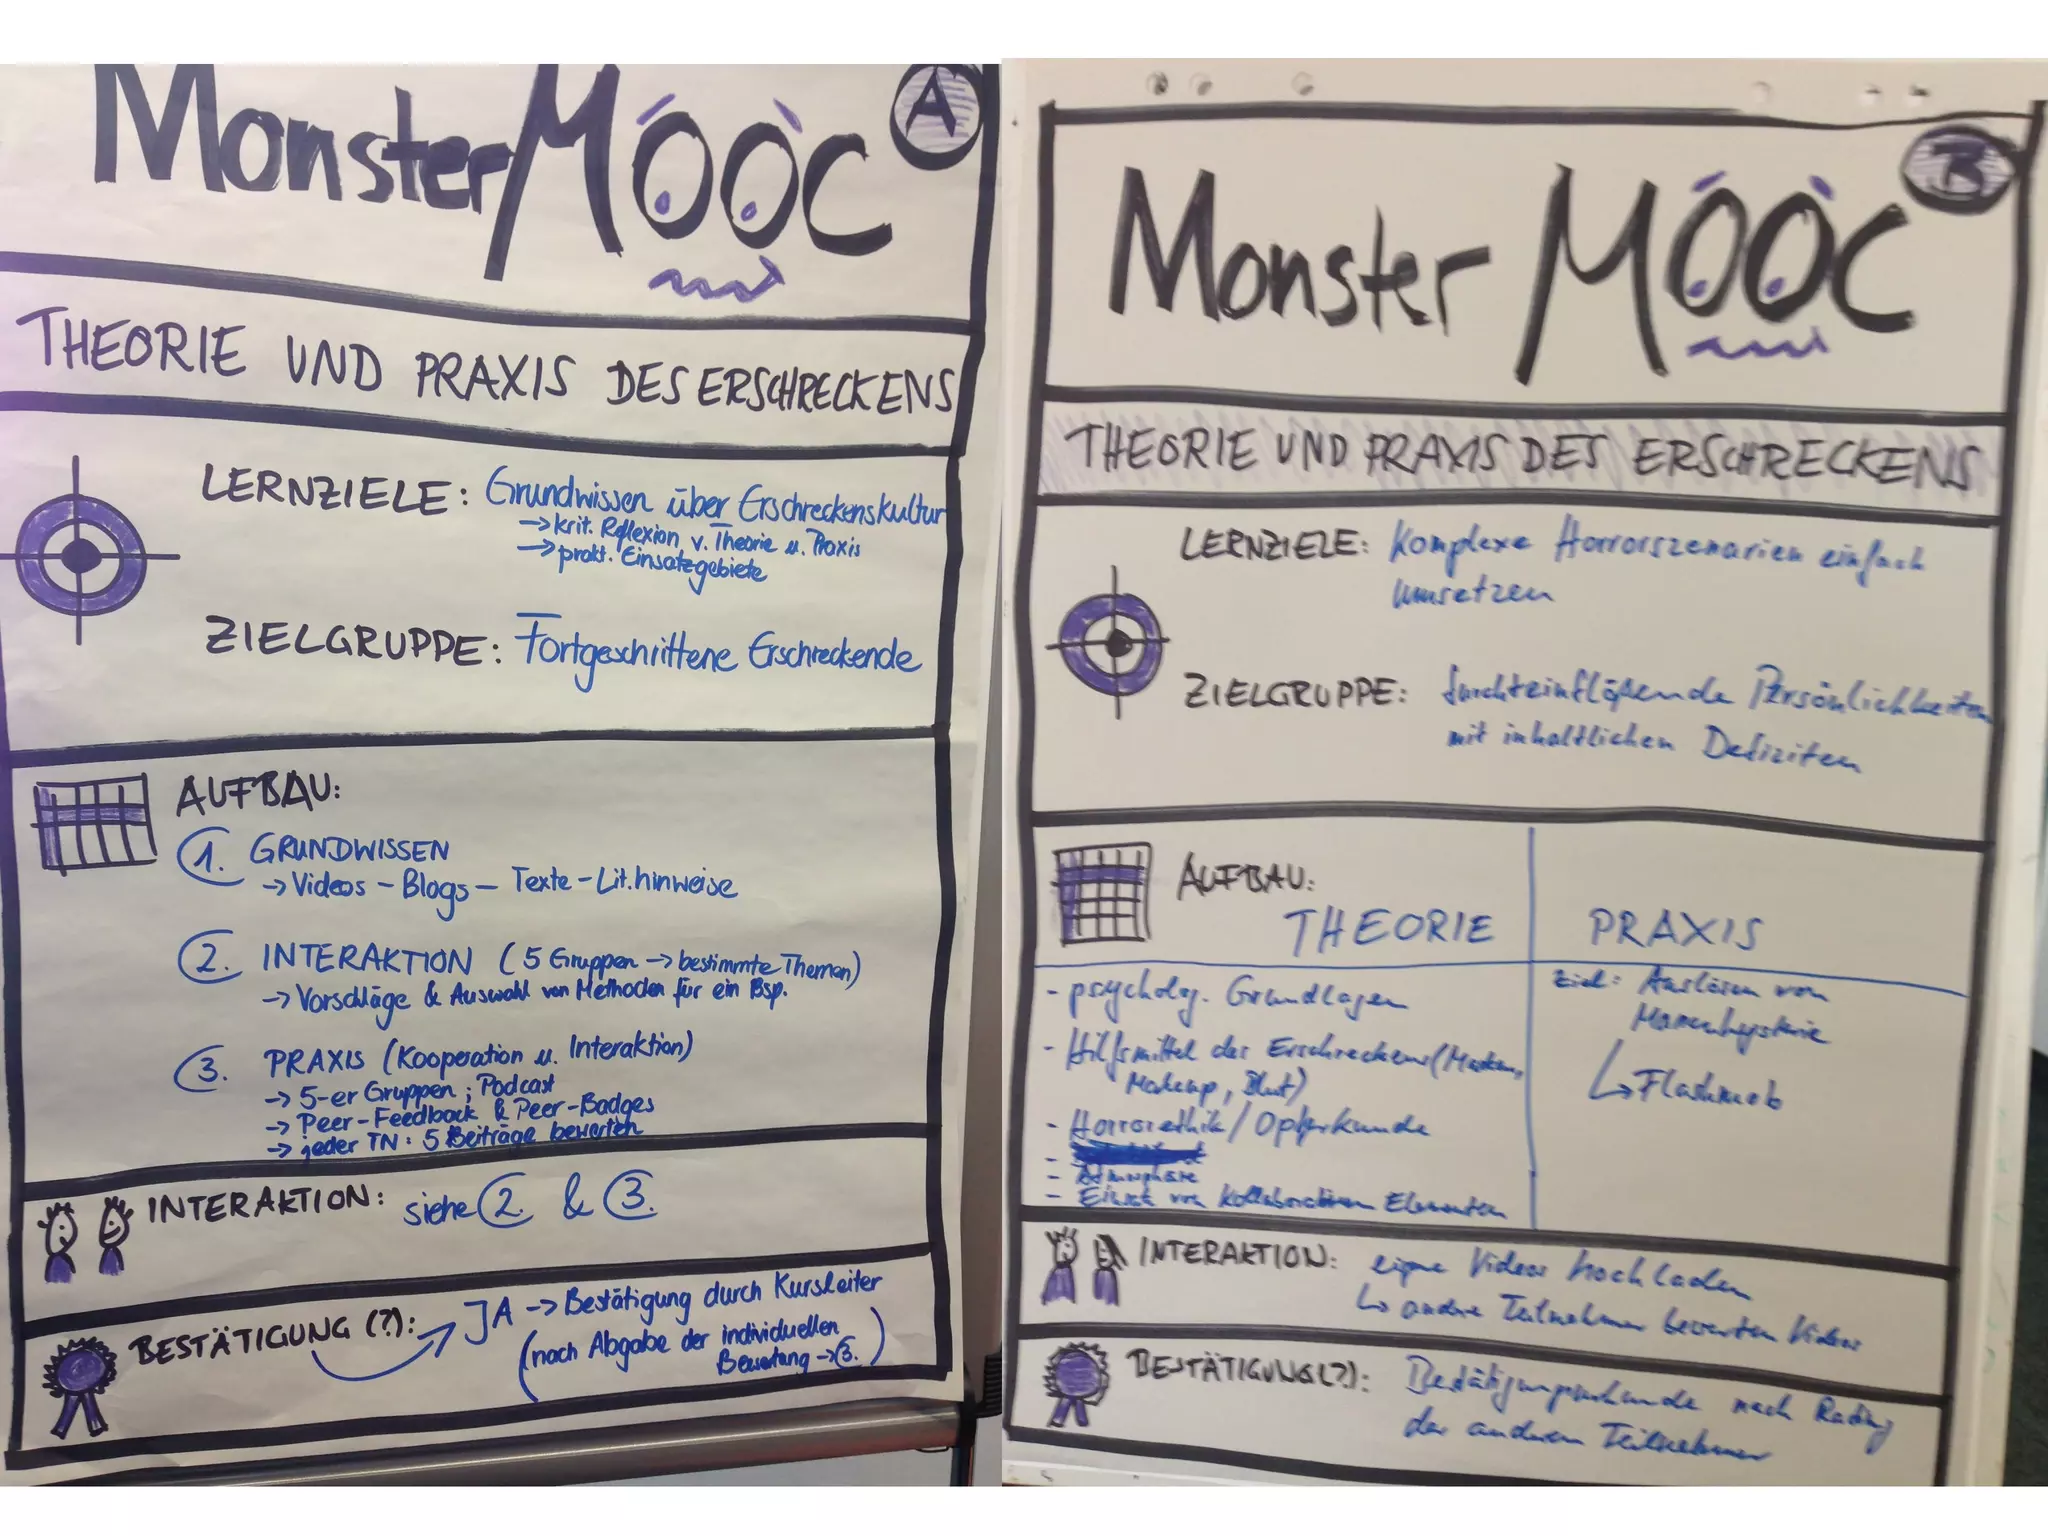 MonsterMOOC
A
THEORIE UND PRAXIS DES ERSCHRECKENS
LERNZIELE: Grundwissen über Erschreckenskultur
→ krit. Reflexion v. Theorie u. Praxis
→ prakt. Einsatzgebiete
ZIELGRUPPE: Fortgeschrittene Erschreckende
AUFBAU:
1. GRUNDWISSEN
→ Videos - Blogs - Texte - Lit.hinweise
2. INTERAKTION (5 Gruppen → bestimmte Themen)
→ Vorschläge & Auswahl von Methoden für ein Bsp.
3. PRAXIS (Kooperation u. Interaktion)
→ 5-er Gruppen; Podcast
→ Peer-Feedback & Peer-Badges
→ jeder TN: 5 Beiträge bewerten
INTERAKTION: siehe 2. & 3.
BESTÄTIGUNG (?): JA → Bestätigung durch Kursleiter
(nach Abgabe der individuellen
Bewertung → 3.)
Monster MOOC
B
THEORIE UND PRAXIS DES ERSCHRECKENS
LERNZIELE: Komplexe Horrorszenarien einfach
umsetzen
ZIELGRUPPE: furchteinflößende Persönlichkeiten
mit inhaltlichen Defiziten
AUFBAU:
THEORIE
- psycholog. Grundlagen
- Hilfsmittel des Erschreckens (Masken,
Makeup, Blut)
- Horrorethik / Opferkunde
-
- Atmosphäre
- Einsatz von kollaborativen Elementen
PRAXIS
Ziel: Auslösen von
Massenhysterie
↳ Flashmob
INTERAKTION: eigene Videos hochladen
↳ andere Teilnehmer bewerten Videos
BESTÄTIGUNG(?): Bestätigungsurkunde nach Rating
der anderen Teilnehmer